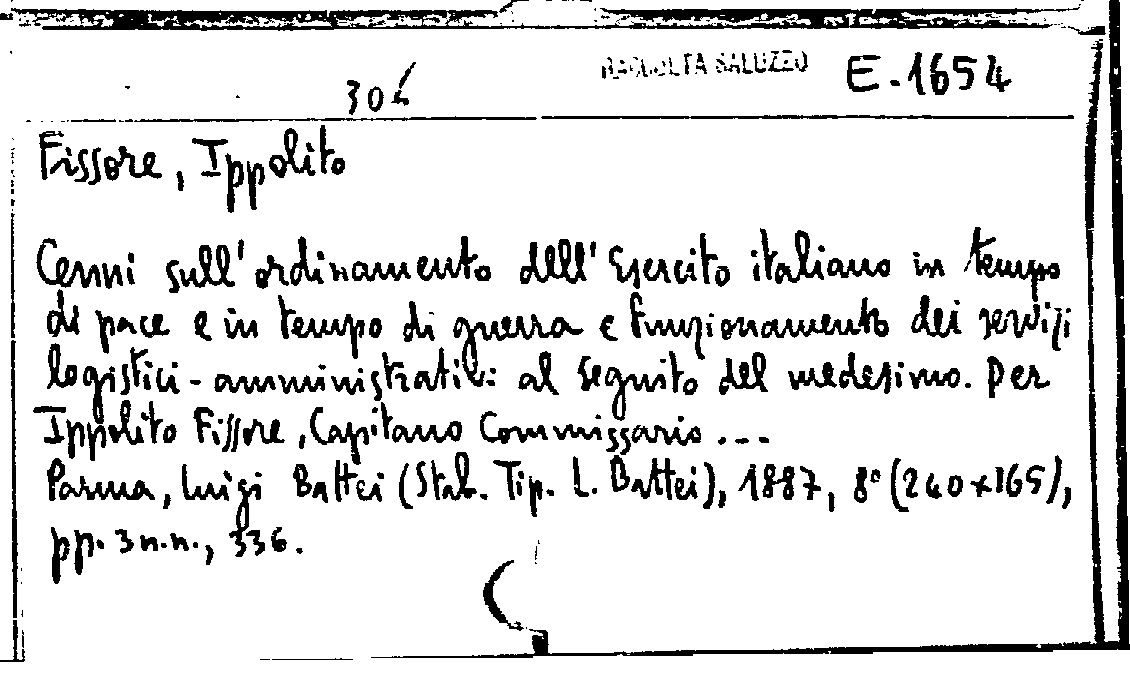 RACCOLTA SALUZZO
306 E.1654
Fissore, Ippolito
Cenni sull'ordinamento dell'Esercito italiano in tempo
di pace e in tempo di guerra e funzionamento dei servizi
logistici-amministrativi al seguito del medesimo. Per
Ippolito Fissore, Capitano Commissario ...
Parma, Luigi Battei (Stab. Tip. L. Battei), 1887, 8° (240x165),
pp. 3 n.n., 336.